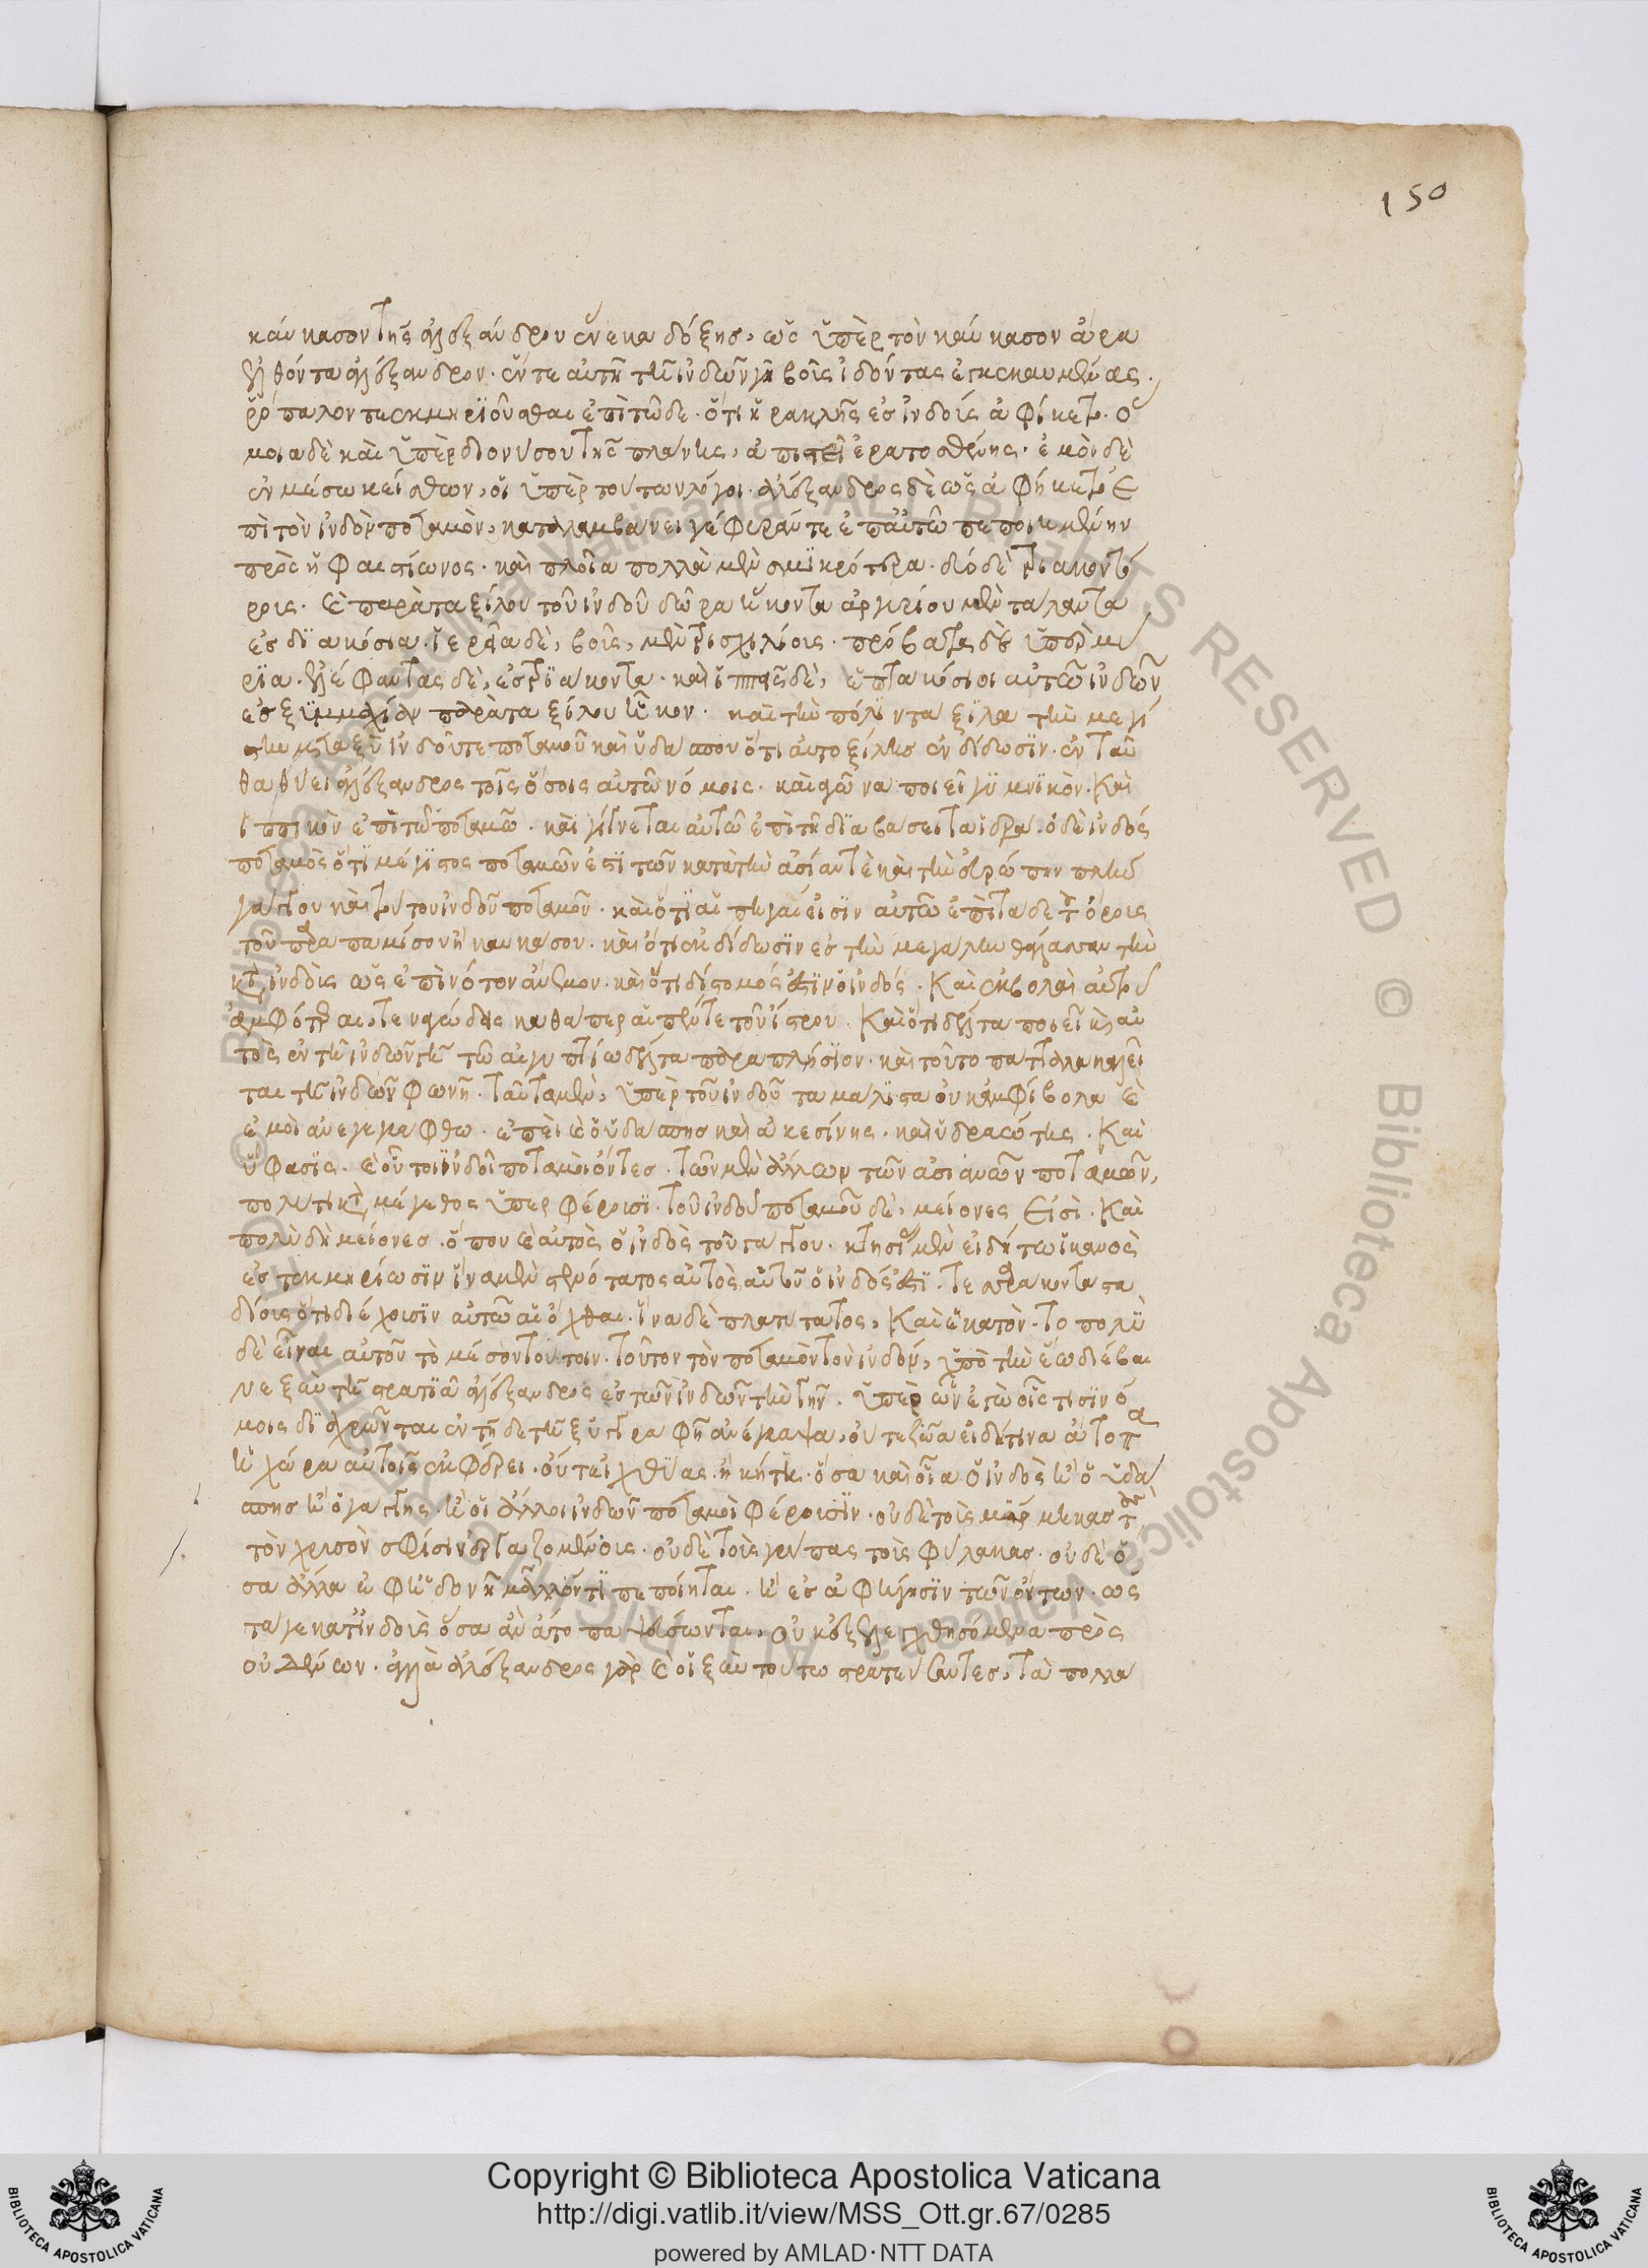 καύκασον τῆς ἀλεξάνδρου ἕνεκα δόξης, ὡς ὑπὲρ τὸν καύκασον ἄρα
ἐλθόντα ἀλέξανδρον. ἔν τε αὐτῆ τῆ ἰνδῶν γῆ βοῦς ἰδόντας ἐγκεκαυμένας.
ῥόπαλον τεκμηριοῦσθαι ἐπὶ τῶδε. ὅτι ἡρακλῆς ἐσ ἰνδοὺς ἀφίκετο. ὅ
μοια δὲ καὶ ὑπὲρ διονύσου τῆς πλάνης, ἀπιστεῖ ἐρατοσθένης. ἐμοὶ δὲ
ἐν μέσω κείσθων, οἱ ὑπὲρ τούτων λόγοι. ἀλέξανδρος δὲ ὡς ἀφήκετο ἐ
πὶ τὸν ἰνδὸν ποταμὸν, καταλαμβάνει γέφυράν τε ἐπ αὐτῶ πεποιημένην
πρὸς ἡφαιστίωνος. καὶ πλοῖα πολλὰ μὲν σμϊκρότερα. δύο δὲ τριακοντό
ρους. καὶ παρὰ ταξίλου τοῦ ἰνδοῦ δῶρα ἥκοντα ἀργυρίου μὲν τάλαντα
ἐσ διακόσια. ἱερεῖα δὲ, βοῦς, μὲν τρισχιλίους. πρόβατα δὲ ὑπὲρ μύ
ρϊα. ἐλέφαντας δὲ, ἐσ τριάκοντα. καὶ ἱππεῖς δὲ, ἑπτακόσιοι αὐτῶ ἰνδῶν
ἐσ ξυμμαχίαν παρὰ ταξίλου ἧκον. καὶ τὴν πόλιν τάξιλα τὴν μεγί
στην μεταξὺ ἰνδοῦ τε ποταμοῦ καὶ ὑδάσπου ὅτι αὐτῶ ταξίλης ἐνδίδωσϊν. ἐνταῦ
θα θύει ἀλέξανδρος τοῖς θεοῖς αὐτῶ νόμοις. καὶ ἀγῶνα ποιεῖ γυμνϊκὸν. καὶ
ἱππικὸν ἐπὶ τῶ ποταμῶ. καὶ γίνεται αὐτῶ ἐπὶ τῆ διαβάσει τὰ ἱερὰ. ὁ δὲ ἰνδός
ποταμὸς ὅτϊ μέγϊστος ποταμῶν ἐστϊ τῶν κατὰ τὴν ἀσίαν τὲ καὶ τὴν εὐρώπην πλὴν
γάγγου καὶ τούτου ἰνδοῦ ποταμοῦ. καὶ ὅτϊ αἱ πηγαί εἰσϊν αὐτῶ ἐπὶ τάδε τοῦ ὄρους
τοῦ παραπαμίσου ἢ καυκάσου. καὶ ὅτι ἐκδίδωσϊν ἐσ τὴν μεγάλην θάλασσαν τὴν
κατὰ ἰνδοὺς ὡς ἐπὶ νότον ἄνεμον. καὶ ὅτι δίστομός ἐστϊν ὁ ἰνδός. καὶ ἐκβολαὶ αὐτοῦ
ἀμφότεραι, τεναγώδεις καθάπερ αἱ πέντε τοῦ ἴστρου. καὶ ὅτι δέλτα ποιεῖ καὶ αὐ
τὸς ἐν τῆ ἰνδῶν γῆ τῶ αἰγυπτίω δέλτα παραπλήσϊον. καὶ τοῦτο πάταλα καλεῖ
ται τῆ ἰνδῶν φωνῆ. ταῦτα μὲν, ὑπὲρ τοῦ ἰνδοῦ τὰ μάλϊστα οὐκ ἀμφίβολα καὶ
ἐμοὶ ἀναγεγράφθω. ἐπεὶ καὶ ὁ ὑδάσπησ καὶ ἀκεσίνης. καὶ ὑδραώτης. καὶ
ὕφασϊς. καὶ οὗτοι ἰνδοὶ ποταμοὶ ὄντες. τῶν μὲν ἄλλων τῶν ἀσιανῶν ποταμῶν,
πολύ τι κατὰ μέγεθος ὑπερφέρουσϊ. τοῦ ἰνδοῦ ποταμοῦ δὲ, μείονες εἰσὶ. καὶ
πολὺ δὴ μείονεσ. ὅπου καὶ αὐτὸς ὁ ἰνδὸς τοῦ γάγγου. κτησίας μὲν εἰ δή τω ἱκανὸς
ἐσ τεκμηρίωσϊν ἵνα μὲν στενότατος αὐτὸς αὑτοῦ ὁ ἰνδός ἐστϊ. τεσσαράκοντα στα
δίους ὅτι διέχουσϊν αὐτῶ αἱ ὄχθαι. ἵνα δὲ πλατύτατος, καὶ ἑκατὸν. τὸ πολὺ
δὲ εἶναι αὐτοῦ τὸ μέσον τούτοιν. τοῦτον τὸν ποταμὸν τὸν ἰνδόν, ὑπὸ τὴν ἕω διέβαι
νε ξὺν τῆ στρατιᾶ ἀλέξανδρος ἐσ τῶν ἰνδῶν τὴν γῆν. ὑπὲρ ὧν ἐγὼ οὔτε οἷς τισὶν νό
μοις διαχρῶνται ἐν τῆ δε τῆ ξυγγραφῆ ἀνέγραψα, οὔτε ζῶα εἰ δή τινα ἄτοπα
ἡ χώρα αὐτοῖς ἐκφέρει. οὔτε ἰχθύας. ἢ κήτη. ὅσα καὶ οἷα ὁ ἰνδὸς ἢ ὁ ὑδά
σπησ ἢ ὁ γάγγης. ἢ οἱ ἄλλοι ἰνδῶν ποταμοὶ φέρουσϊν. οὐδὲ τοὺς μύρμηκας τοὺς
τὸν χρυσὸν σφίσιν ἐργαζομένους. οὐδὲ τοὺς γρύπας τοὺς φύλακασ. οὐδὲ ὅ
σα ἄλλα ἐφ ἡδονῆ μᾶλλόν τϊ πεποίηται. ἢ ἐσ ἀφήγησϊν τῶν ὄντων. ὡς
τά γε κατ ἰνδοὺς ὅσα ἂν ἄτοπα ψεύσωνται, οὐκ ἐξελεγχθησόμενα πρὸς
οὐδένων. ἀλλὰ ἀλέξανδρος γὰρ καὶ οἱ ξὺν τούτω στρατεύσαντεσ, τὰ πολλὰ
150